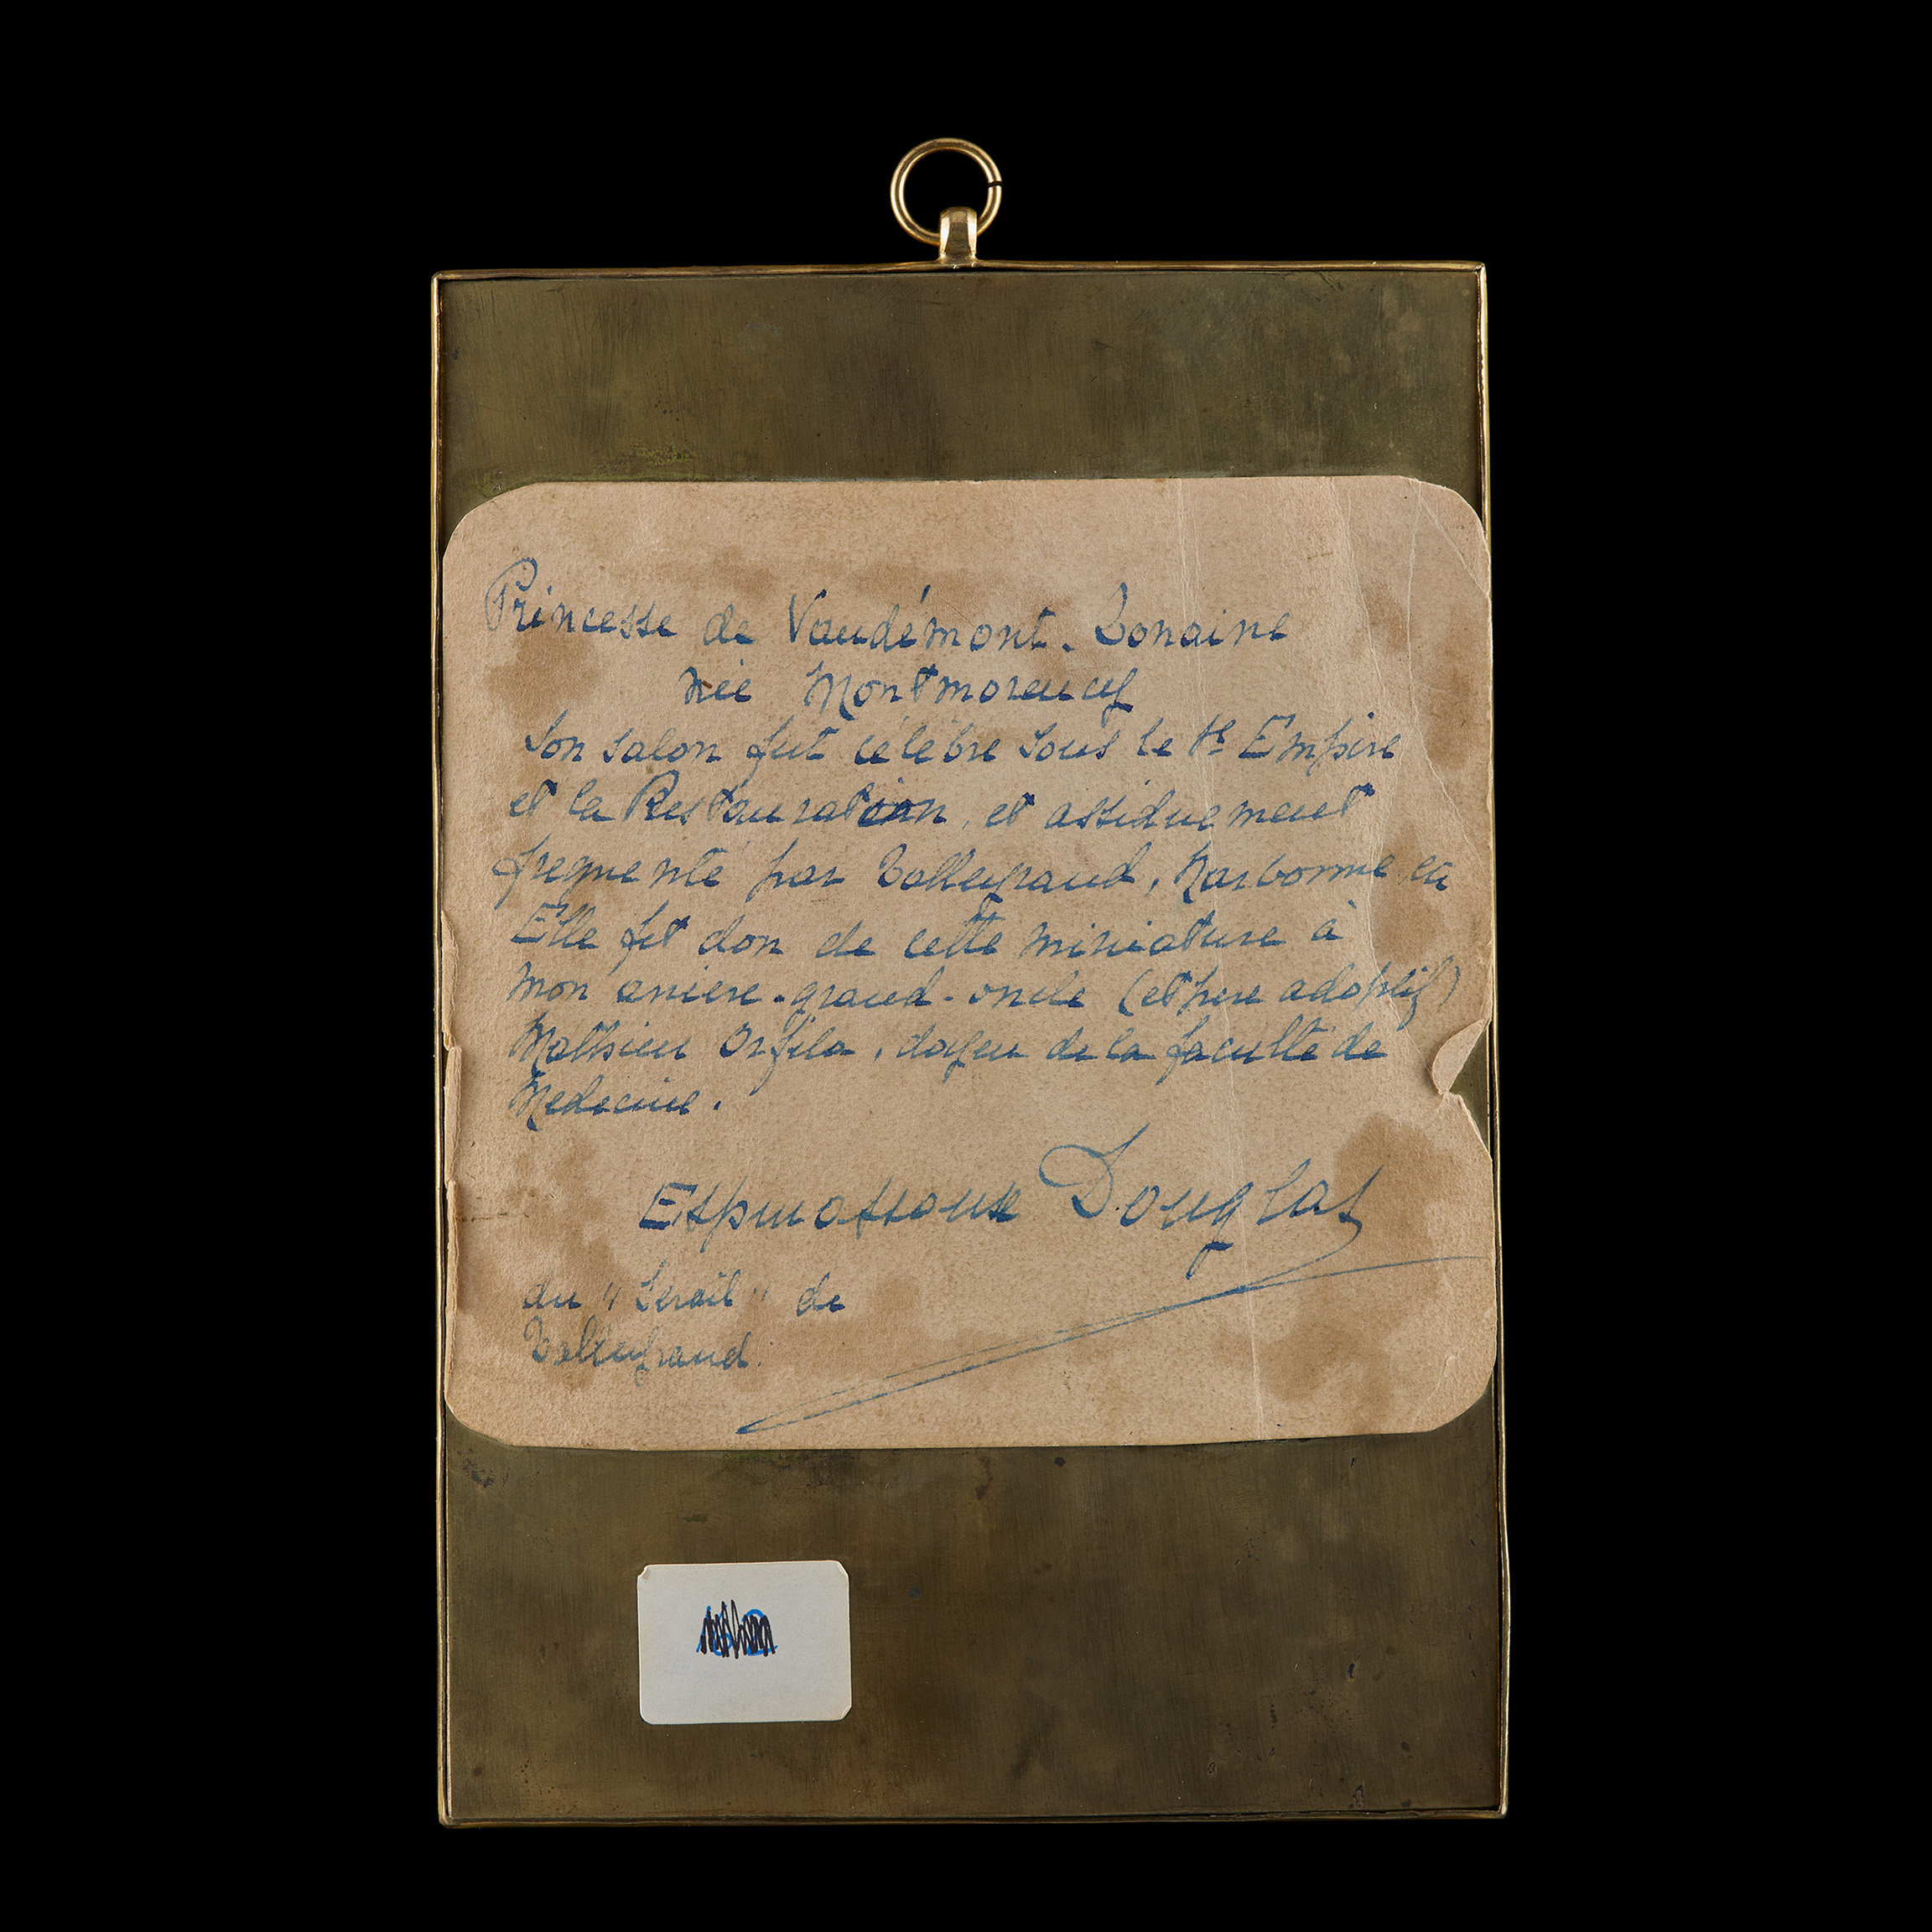 Princesse de Vaudémont. Lorraine
née Montmorency
Son salon fut célèbre sous le Ir Empire
et la Restauration, et assiduement
frequenté par Talleyrand, Narbonne
Elle fit don de cette miniature à
mon arriere-grand-oncle (et pere adoptif)
Mathieu Orfila, doyen de la faculté de
Medecine.
Douglas
du "Serail" de
Talleyrand.